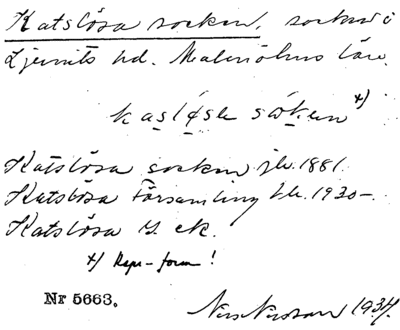 Katslösa socken, socken i
Ljunits hd. Malmöhus län.
kaslǿsa sǿken x)
Katslösa socken jb. 1881.
Katslösa församling 1930–.
Katslösa S. ek.
x) Repr-form!
Nr 5663. 1934.